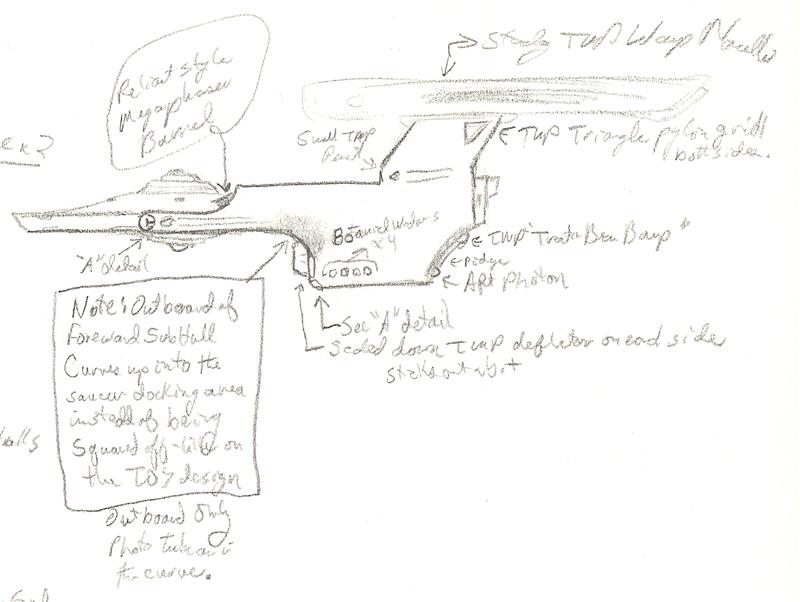 Study TMP Warp Nacelle
Reliant style
Megaphaser
Barrel
Small TMP
TMP Triangle pylon grill
both sides.
Botanical Windows
x 4
TMP "Tractor Beam Bump"
Ridge
Aft photon
"A" detail
See "A" detail
Scaled down TMP deflator on each side
sticks out a bit
Note: Outboard of
Foreward Sub Hull
Curves up into the
saucer docking area
instead of being
Squared off - like on
the TOS design
Outboard Only
Photo Tube in
the curve.